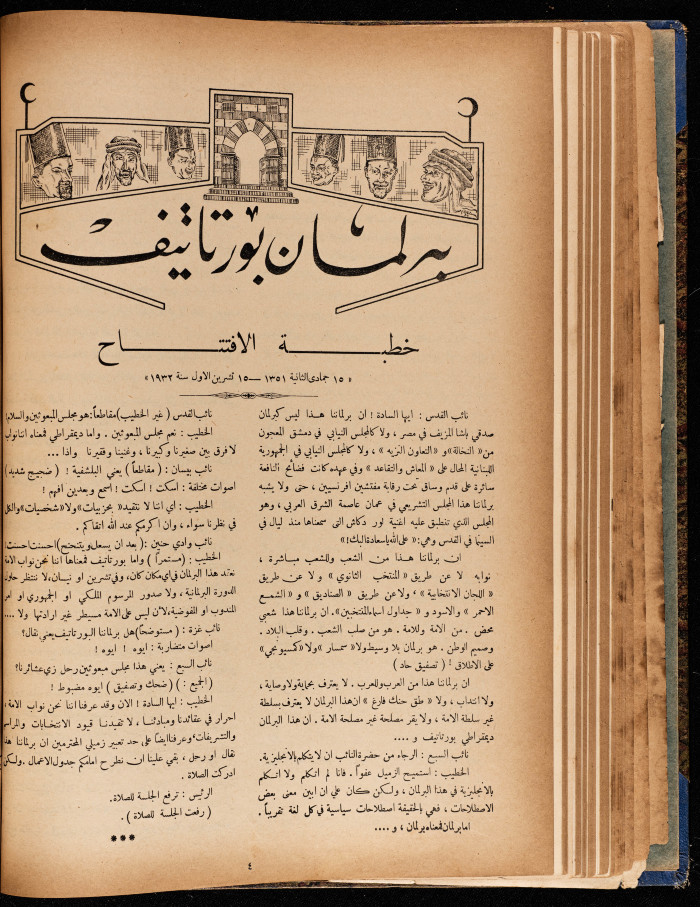 برلمان بورتاتيف
خطبة الافتتاح
« ١٥ جمادى الثانية ١٣٥١ — ١٥ تشرين الاول سنة ١٩٣٢ »
نائب القدس : ايها السادة ! ان برلماننا هذا ليس كبرلمان
صدقي باشا المزيف في مصر ، ولا كالمجلس النيابي في دمشق المعجون
من « النخالة » و « التعاون النزيه » ، ولا كالمجلس النيابي في الجمهورية
اللبنانية المحال على « المعاش والتقاعد » وفي عهده كانت فضائح النافعة
سائرة على قدم وساق تحت رقابة مفتشين افرنسيين ، حتى ولا يشبه
برلماننا هذا المجلس التشريعي في عمان عاصمة الشرق العربي ، وهو
المجلس الذي تنطبق عليه اغنية لور دكاش التي سمعناها منذ ليال في
السينما في القدس وهي : « على الله ياسعادة البك ! »
ان برلماننا هذا من الشعب وللشعب مباشرة ،
نوابه لا عن طريق « المنتخب الثانوي » ولا عن طريق
« اللجان الانتخابية » ، ولا عن طريق « الصناديق » و « الشمع
الاحمر » والاسود و « جداول اسماء المنتخبين » . ان برلماننا هذا شعبي
محض . من الامة وللامة . هو من صلب الشعب . وقلب البلاد .
وصميم الوطن . هو برلمان بلا وسيط ولا « سمسار » ولا « كمسيونجي »
على الاطلاق ! ( تصفيق حاد )
ان برلماننا هذا من العرب وللعرب . لا يعترف بحماية ولا وصاية ،
ولا انتداب ، ولا « طق حنك فارغ » ان هذا البرلمان لا يعترف بسلطة
غير سلطة الامة ، ولا يقر مصلحة غير مصلحة الامة . ان هذا البرلمان
ديمقراطي بورتاتيف و ....
نائب السبع : الرجاء من حضرة النائب ان لا يتكلم بالانجليزية .
الخطيب : استميح الزميل عفواً . فانا لم اتكلم ولا اتكلم
بالانجليزية في هذا البرلمان ، ولكن كان علي ان ابين معنى بعض
الاصطلاحات ، فهي بالحقيقة اصطلاحات سياسية في كل لغة تقريباً .
اما برلمان فمعناه برلمان ، و ....
نائب القدس ( غير الخطيب ) مقاطعاً : هو مجلس المبعوثين والسلام !
الخطيب : نعم مجلس المبعوثين . واما ديمقراطي فمعناه اننا نواب
لا فرق بين صغيرنا وكبيرنا ، وغنينا وفقيرنا واذا ...
نائب بيسان : ( مقاطعاً ) يعني البلشفية ! ( ضجيج شديد )
اصوات مختلفة : اسكت ! اسكت ! اسمع وبعدين افهم !
الخطيب : اي اننا لا نتقيد « بحزبيات » ولا « شخصيات » والكل
في نظرنا سواء ، وان اكرمكم عند الله اتقاكم .
نائب وادي حنين : ( بعد ان يسعل ويتنحنح ) احسنت احسنت !
الخطيب : ( مستمراً ) واما بورتاتيف فمعناها اننا نحن نواب الامة
نعقد هذا البرلمان في اي مكان كان ، وفي تشرين او نيسان ، لا ننتظر حلول
الدورة البرلمانية ، ولا صدور المرسوم الملكي او الجمهوري او امر
المندوب او المفوضية ، لأن ليس على الامة مسيطر غير ارادتها ولا ....
نائب غزة : ( مستوضحاً ) هل برلماننا البورتاتيف يعني نقال ؟
اصوات متضاربة : ايوه ! ايوه !
نائب السبع : يعني هذا مجلس مبعوثين رحل زي عشائرنا ؟
( الجميع : ) ( ضحك وتصفيق ) ايوه مضبوط !
الخطيب : ايها السادة ! الان وقد عرفنا اننا نحن نواب الامة ،
احرار في عقائدنا ومبادئنا ، لا تقيدنا قيود الانتخابات والمراسيم
والتشريفات ، وعرفنا ايضاً على حد تعبير زميلي المحترمين ان برلماننا هذا
نقال او رحل ، بقي علينا ان نطرح امامكم جدول الاعمال . ولكن
ادركت الصلاة .
الرئيس : ترفع الجلسة للصلاة .
( رفعت الجلسة للصلاة ) .
***
٤